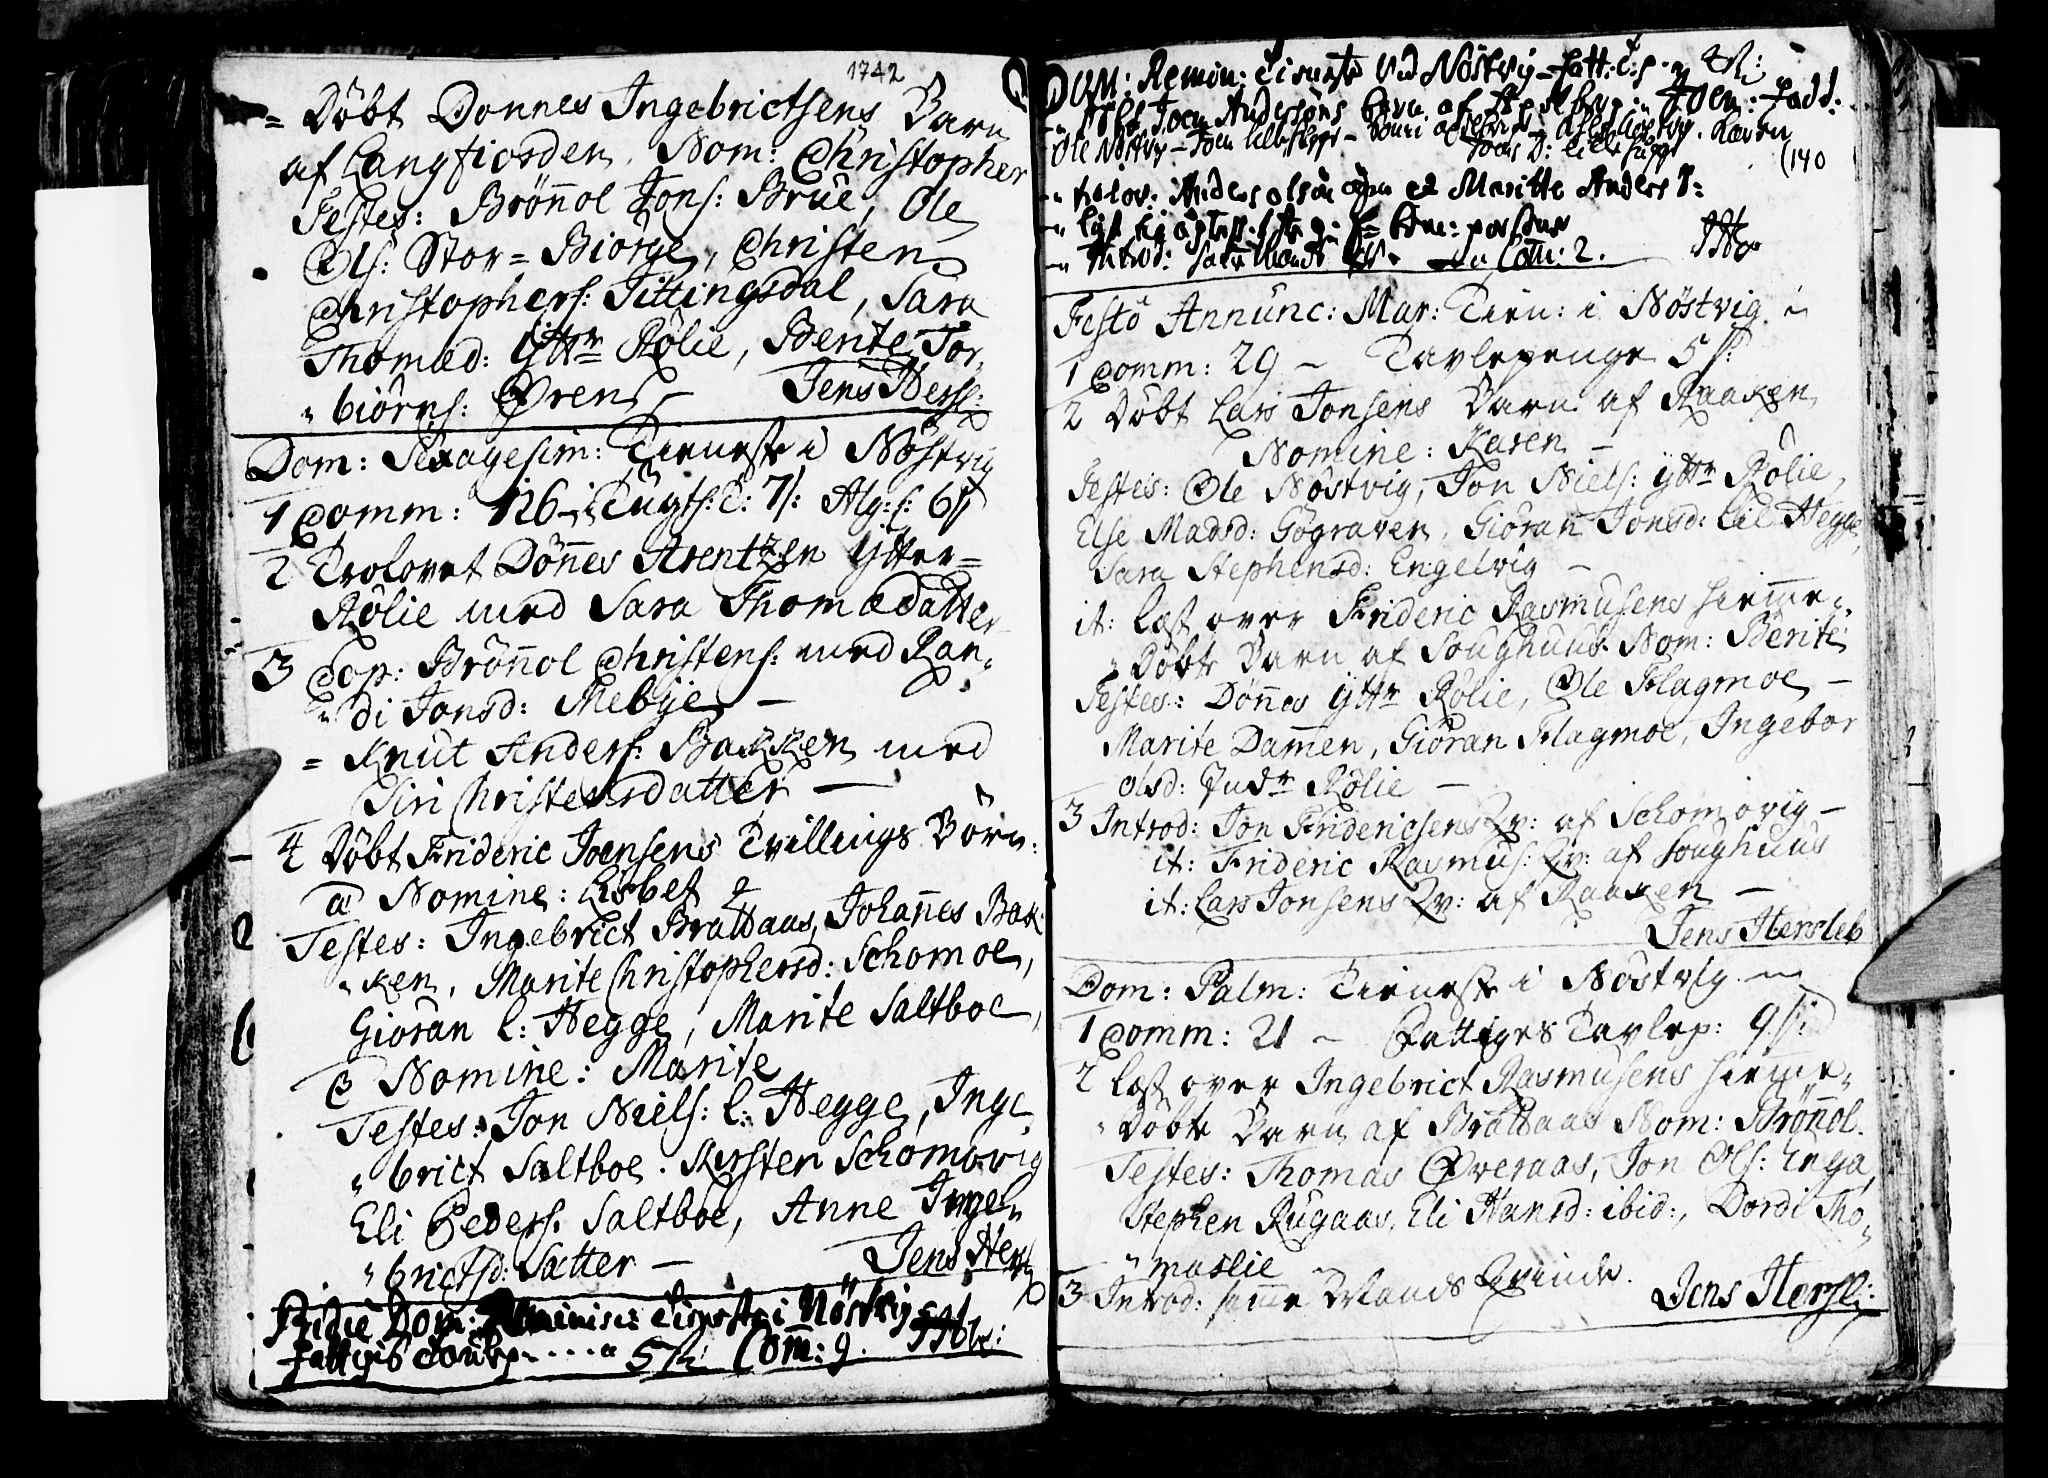 1742
= Döbt Donnes Ingebrictsens Barn
af Langfiorden. Nom: Christopher
Testes: Brönnol Jons: Brue, Ole
Ols: Stor = Biörge, Christen
Christophers: Tittingsdal, Sara
Thomæd: yttr Rölie, Berite Tor-
biörns: Øren — Jens Hersl:
Dom: Sexagesim: Tieneste i Nöstvig
1 Comm: 126 — Tugts: P: 7 s: Alg: s: 6 s
2 Trolovet Dönnes Arentzen ytter=
Rölie med Sara Thomædatter
3 Cop: Brönnol Christens: med Ran-
di Jonsd: Mebye —
= Knut Anders: Bakken med
Siri Christensdatter —
4 Döbt Frideric Joensens Tvillings Börn:
a Nomine: Lisbet
Testes: Ingebrict Brattaas, Johannes Bak-
ken, Marite Christophersd: Schomoe,
Giöran l: Hegge, Marite Saltboe,
Nomine: Marite
Testes: Jon Niels: l: Hegge, Inge
brict Saltboe. Kirsten Schomovig
Eli Peders: Saltboe, Anne Ingel-
brictsd: Sætter — Jens Hersl
Pridie Dom: Reminisc: Tieneste i Nöstvig
fattiges tavlep. .... 5 Comm: 9.
DOM: Remin: Tieneste Ved Nöstvig
Joen Anderssöns barn af
Ole Nöstvig — Karen
(140
trolov: Anders olsön et Maritte Anders D=
Introd: Com: 2.
Festo Annunc: Mar: Tien: i Nöstvig
1 Comm: 29 — Tavlepenge 5 s:
2 Döbt Lars Jonsens Barn af Raaken
Nomine: Karen —
Testes: Ole Nöstvig, Jon Niels: yttr Rölie,
Else Madsd: Gögraven, Giöran Jonsd: Lil Hegge,
Sara Stephensd: Engelvig —
it: læst over Frideric Rasmusens hiemme-
Döbte Barn af Soughuus. Nom: Berite
Testes: Dönnes yttr Rölie, Ole Flagmoe —
Marite Dammen, Giöran Flagmoe, Ingebor
olsd: Indr Rölie —
3 Introd: Jon Fridericsens Qv: af Schomovig —
it: Frideric Rasmus: Qv: af Soughuus
it: Lars Jonsens Qv: af Raaken —
Jens Hersleb
Dom: Palm: Tieneste i Nöstvig —
1 Comm: 21 — Fattiges Tavlep: 9 s:
2 læst over Ingebrict Rasmusens hiemme-
Döbte Barn af Brattaas Nom: Brönnol.
Testes: Thomas Øveraas, Jon Ols: Enga,
Stephen Rugaas, Eli Hansd: ibid:, Dordi Tho-
maslie
3 Introd: samme Mands Qvinde. Jens Hersl: